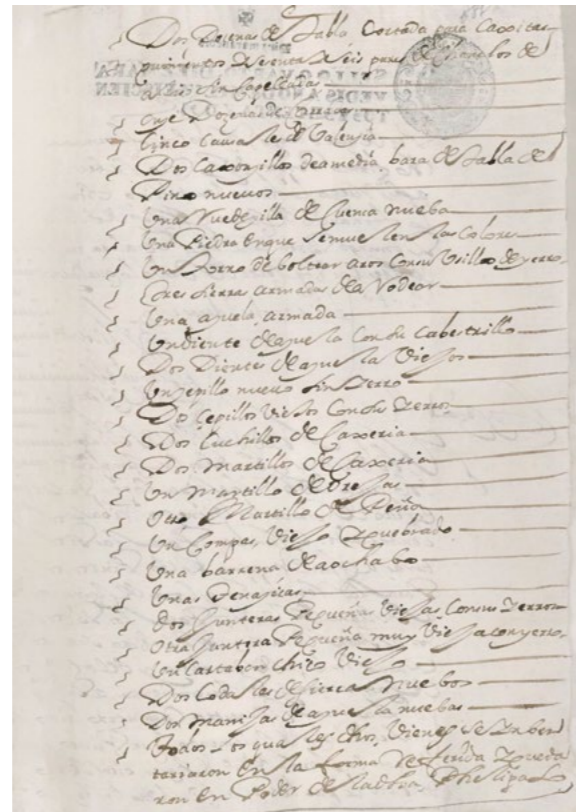 Dos Dozenas de tabla Cortada para Caxitas
quinientos Setenta Seis pares de
sin Capelladas
onze Dozenas de
Cinco de Valencia
Dos Caxonsillos de a media bara de tabla de
Pino nuevos
Una Ruedezilla de Cuenca nueba
Una Piedra en que Se muelen las Colores
Un torno de boltear aros Con su Usillo de yerro
tres sierras armadas de a Rodear
Una azuela armada
Un diente de azuela Con su Cabestrillo
Dos Dientes de azuela Viejos
Un zepillo nuevo sin Zerro
Dos Zepillos Viejos Con su Zerro
Dos Cuchillos de Caxeria
Dos martillos de Caxeria
Un Martillo de Orejas
Otro Martillo de Peña
Un Compas Viejo Quebrado
Una barrena de a ochabo
Unas Tenazitas
Dos Junteras Pequeñas Viejas Con sus Zerros
Otra Juntera Pequeña muy Vieja con yerro
Un Cartabon chico Viejo
Dos Codales de sierra Nuebos
Dos Manijas de azuela nuebas
Todos Los quales dhos Vienes Se Inben
tariaron En la forma Referida Y queda
ron En Poder de la dha Phelipa